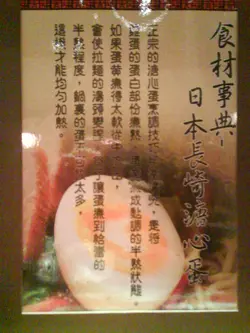 食材事典
日本長崎溏心蛋
正宗的溏心蛋烹調技巧 是將
雞蛋的蛋白部份煮熟 成黏調的半熟狀態。
如果蛋黃煮得太軟從
會使拉麵的湯頭變 了讓蛋煮到恰當的
半熟程度,鍋裏的蛋 太多,
這樣才能均勻加熱。